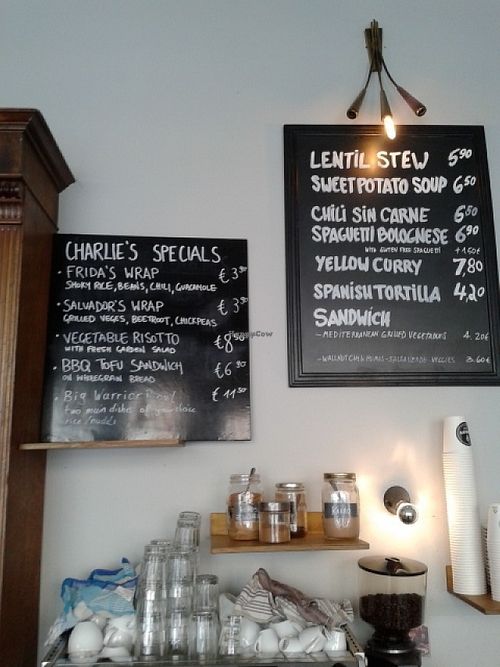 CHARLIE'S SPECIALS
• FRIDA'S WRAP € 3,90
SMOKY RICE, BEANS, CHILI, GUACAMOLE
• SALVADOR'S WRAP € 3,90
GRILLED VEGES, BEETROOT, CHICKPEAS
• VEGETABLE RISOTTO € 8,50
WITH FRESH GARDEN SALAD
• BBQ TOFU SANDWICH € 6,90
ON WHOLEGRAIN BREAD
• Big Warrior € 11,50
two main dishes of your choice
HappyCow
LENTIL STEW 5,90
SWEETPOTATO SOUP 6,50
CHILI SIN CARNE 6,50
SPAGUETTI BOLOGNESE 6,90
WITH GLUTEN FREE SPAGUETTI +1.50€
YELLOW CURRY 7,80
SPANISH TORTILLA 4,20
SANDWICH
- MEDITERRANEAN GRILLED VEGETABLES 4.20€
VEGGIES 3.60€
KAKAO